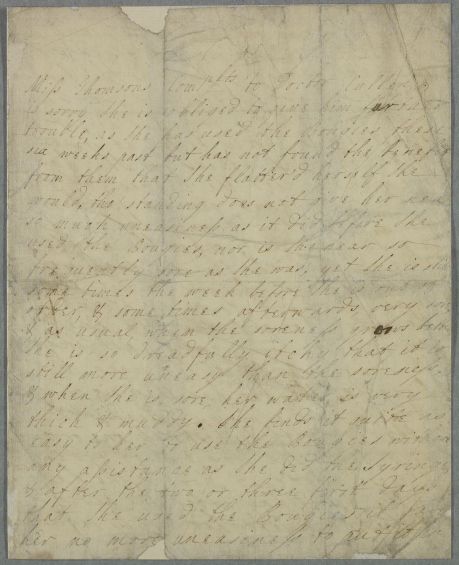 Miss Thomsons Compts to Doctor Cullen, &
is sorry she is obliged to give him further
trouble, as she has used the Bougies these
six weeks past but has not found the benefit
from them that she flatter'd herself she
would, tho' standing does not give her near
so much uneasiness as it did before she
used the Bougies, nor is she near so
frequently sore as she was, yet she is still
some times the week before she is
order, & some times afterwards very sore
& as usual when the soreness grows better
she is so dreadfully itchy that it is
still more uneasy than the soreness.
& when she is sore, her water is very
thick & muddy. She finds it quite as
easy to her to use the Bougies without
any assistance as she did the Syringe
& after the two or three first days
that she used the Bougies it gave
her no more uneasiness to put